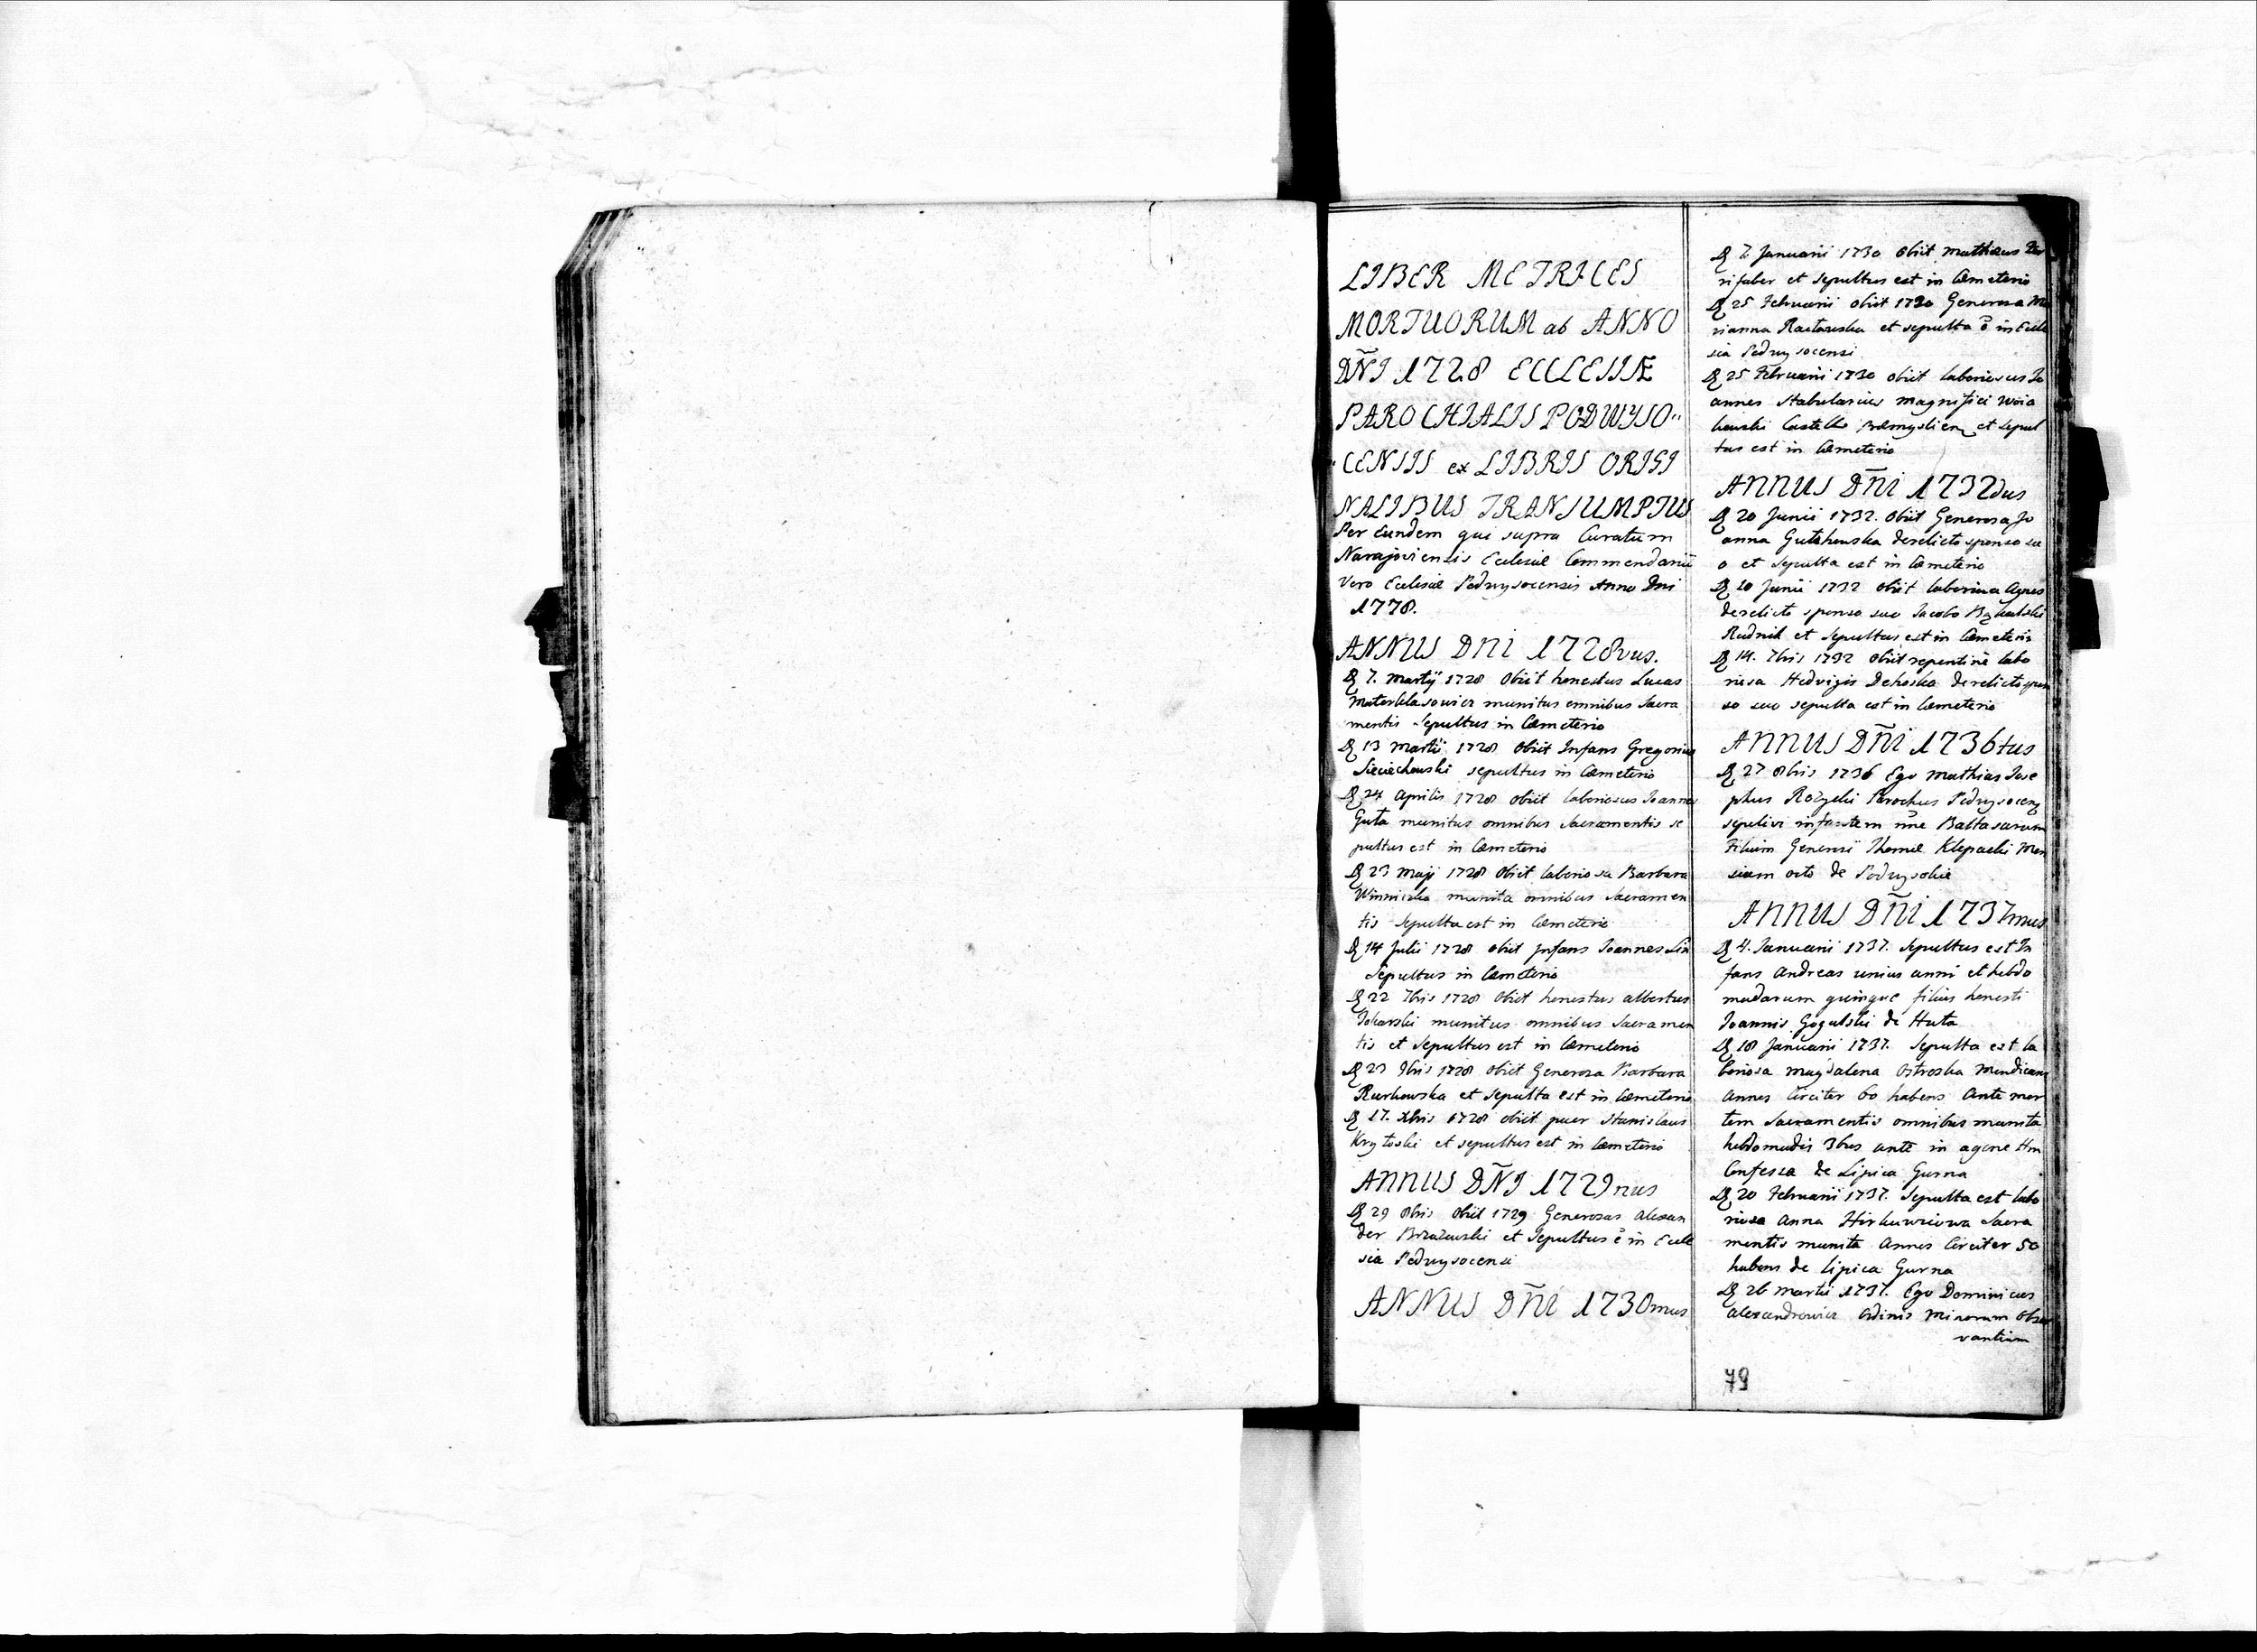 LIBER METRICES
MORTUORUM ab ANNO
DÑI 1728 ECCLESIÆ
PAROCHIALIS PODWYSO„
„CENSIS ex LIBRIS ORIGI
NALIBUS TRANSUMPTUS
Per Eundem qui supra Curatum
Narajoviensis Ecclesiæ Commendariũ
Vero Ecclesiæ Podwysocensis Anno Dni
1778.
ANNUS DNI 1728vus.
D 7. Martij 1728 Obiit honestus Lucas
munitus omnibus Sacra
mentis Sepultus in Cæmeterio
D 13 Martii 1728 Obiit Infans Gregorius
Sieciechowski sepultus in Cæmeterio
D 24 Aprilis 1728 obiit laboriosus Joannes
Guta munitus omnibus Sacramentis se
pultus est in Cæmeterio
D 23 Maji 1728 Obiit laboriosa Barbara
Winniczka munita omnibus Sacramen
tis Sepulta est in Cæmeterio
D 14 Julii 1728 obiit Infans Joannes Lis
Sepultus in Cæmeterio
D 22 7bris 1728 Obiit honestus Albertus
Tokarski munitus omnibus Sacramen
tis et Sepultus est in Cæmeterio
D 23 9bris 1728 Obiit Generosa Barbara
Rurkowska et Sepulta est in Cæmeterio
D 17. Xbris 1728 obiit puer Stanislaus
Krytoski et sepultus est in Cæmeterio
ANNUS DÑI 1729nus
D 29 8bris Obiit 1729 Generosus Alexan
der Brzozowski et Sepultus ẽ in Eccle
sia Podwysocensi
ANNUS DÑI 1730mus
D 7 Januarii 1730 Obiit Mathæus
rifaber et Sepultus est in Cæmeterio
D 25 Februarii obiit 1730 Generosa Ma
rianna et sepulta ẽ in Eccle
sia Podwysocensi
D 25 Februarii 1730 obiit laboriosus Jo
annes Stabularius Magnifici Woia
kowski et Sepul
tus est in Cæmeterio
ANNUS DÑI 1732dus
D 20 Junii 1732. Obiit Generosa Jo
anna derelicto sponso su
o et Sepulta est in Cæmeterio
D 20 Junii 1732 Obiit laboriosa Agnes
derelicto sponso suo Jacobo
Rudnik et Sepultus est in Cæmeterio
D 14. 7bris 1732 Obiit repentine labo
riosa Hedvigis Dehoska derelicto spon
so suo sepulta est in Cæmeterio
ANNUS DÑI 1736tus
D 27 8bris 1736 Ego Mathias Jose
phus Parochus
sepelivi infantem nñe Baltasarum
Filium Generosi Thomæ Klepacki Men
sium octo de Podwysokie
ANNUS DÑI 1737mus
D 4. Januarii 1737. Sepultus est In
fans Andreas unius anni et hebdo
madarum quinque filius honesti
Joannis Gogulski de Huta
D 18 Januarii 1737. Sepulta est la
boriosa Magdalena Ostroska Mendicans
Annos Circiter 60 habens Ante mor
tem Sacramentis omnibus munita
hebdomadis 3bus ante in agone
Confessa de Lipica Gurna
D 20 Februarii 1737. Sepulta est labo
riosa Anna Sacra
mentis munita Annos Circiter 50
habens de Lipica Gurna
D 26 Martii 1737. Ego Dominicus
Alexandrowicz Ordinis Minorum Obser
vantium
79